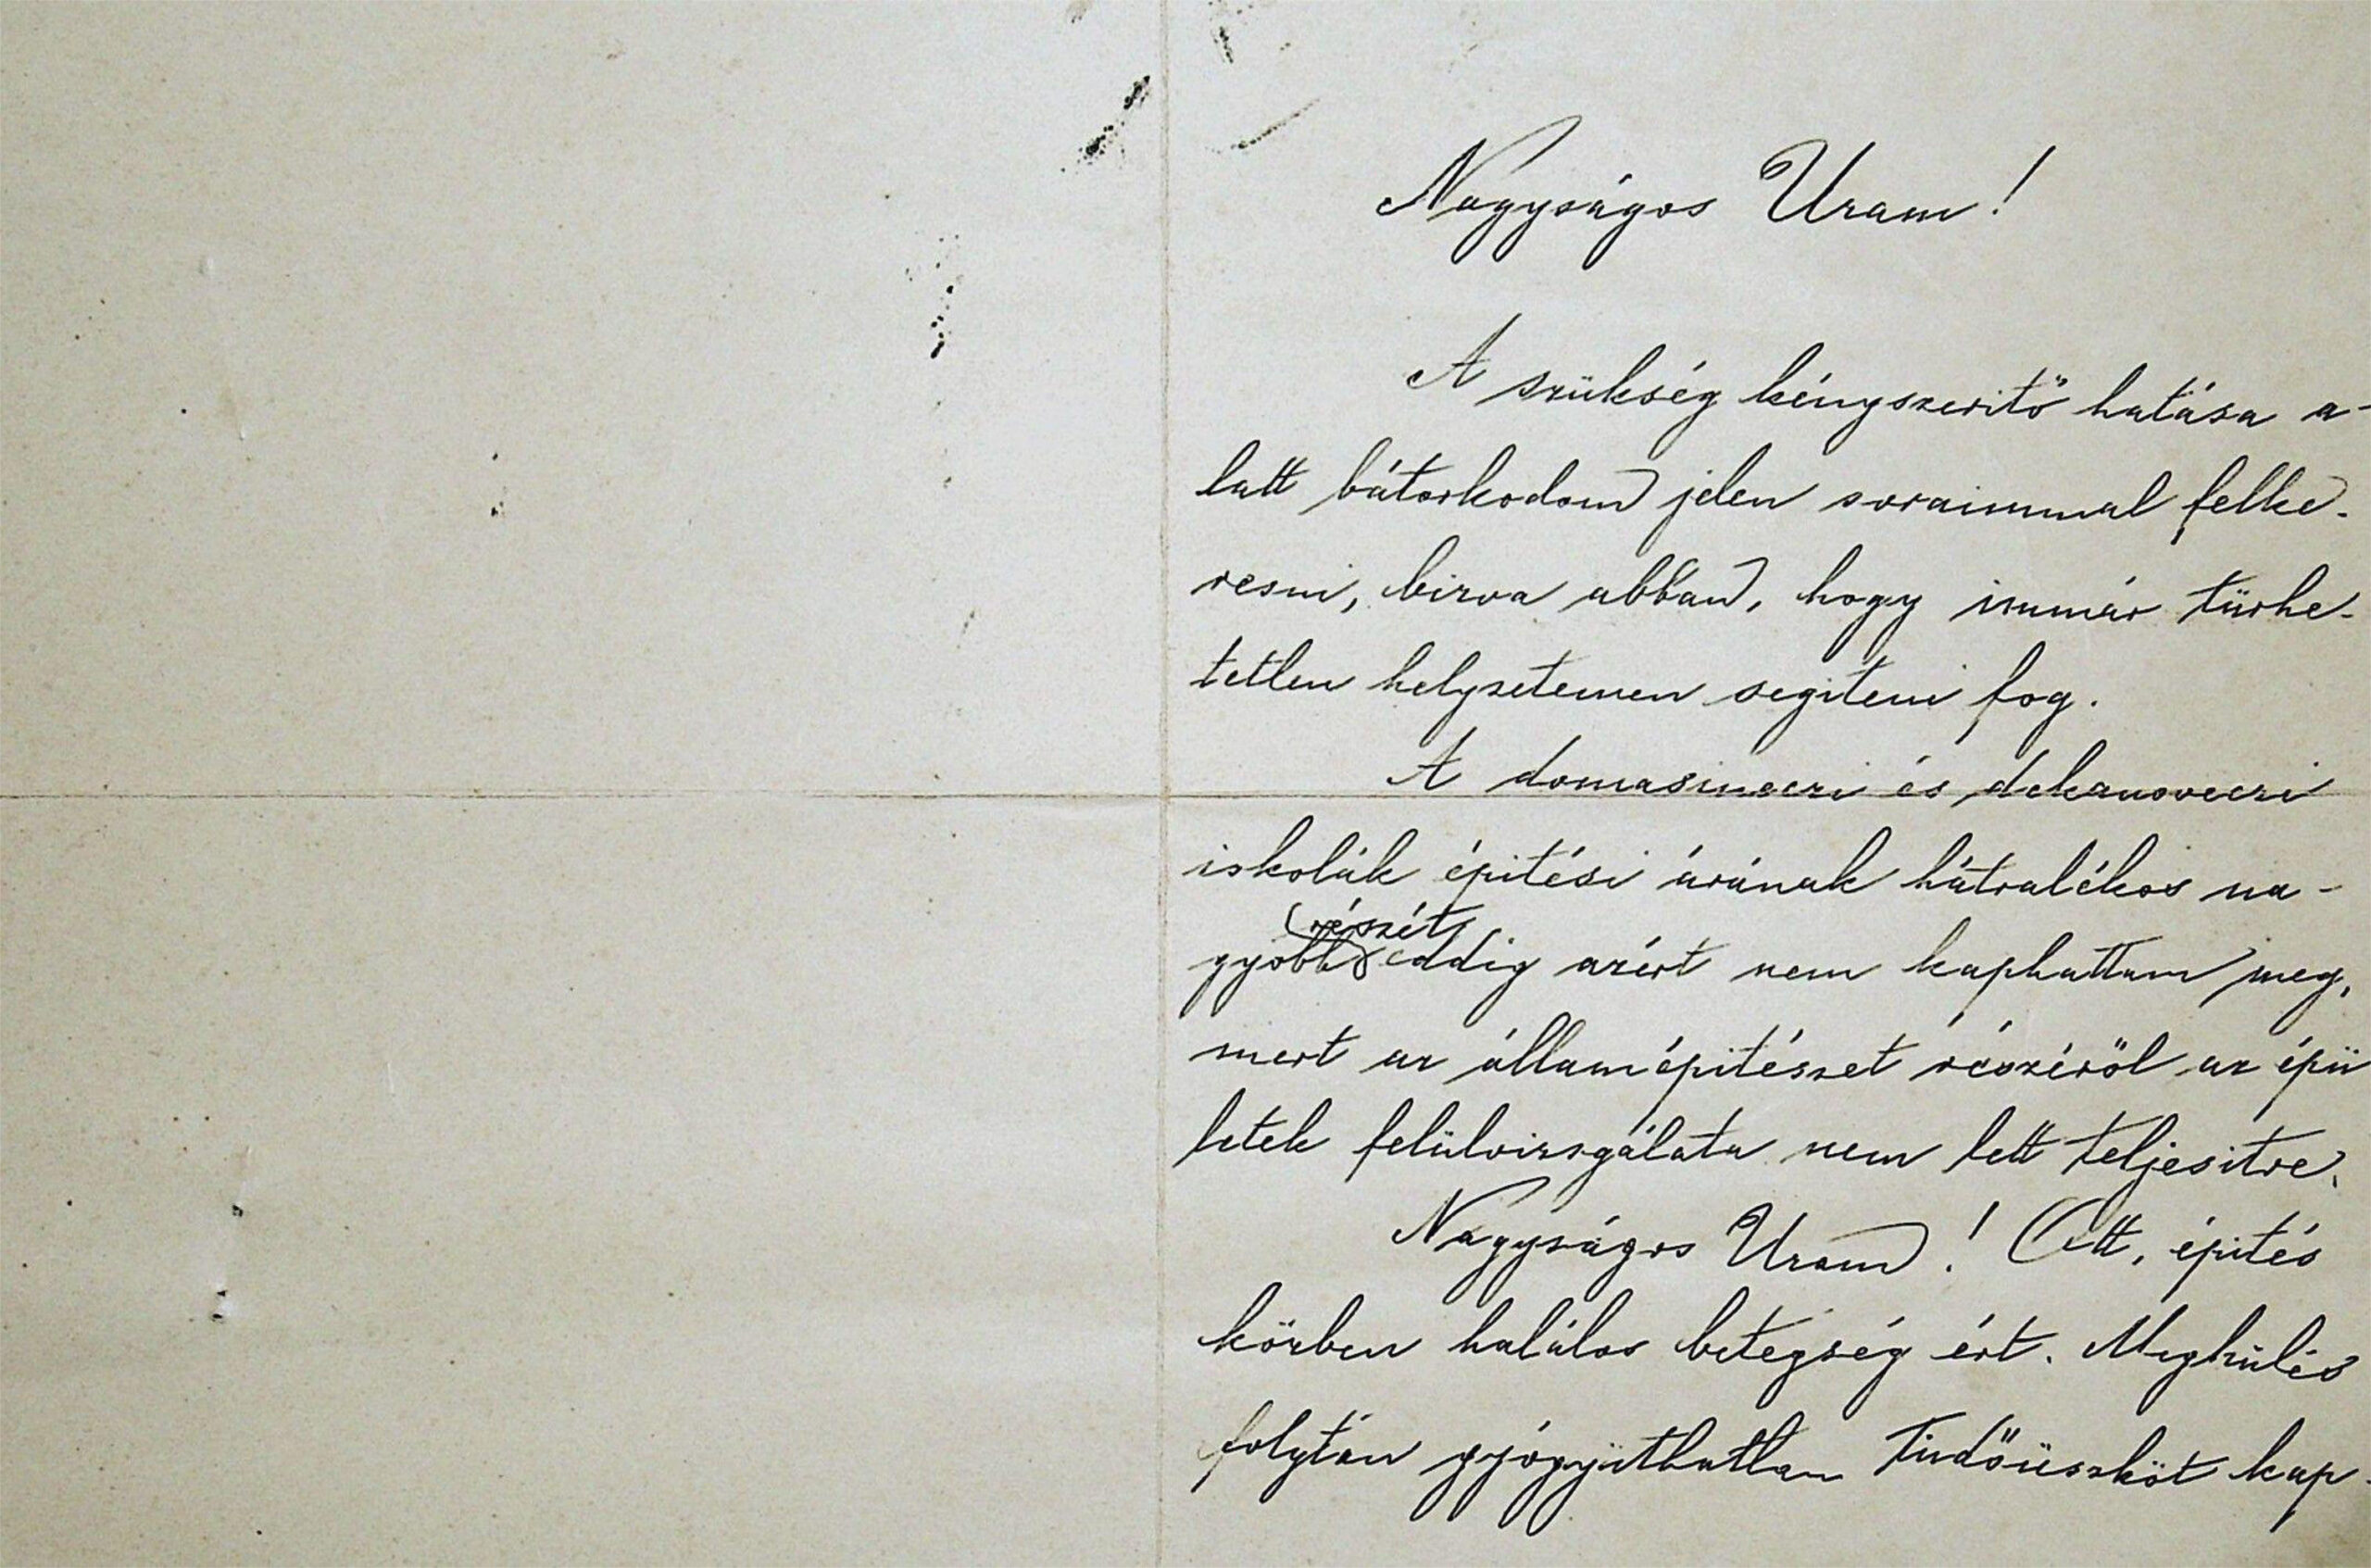 Nagyságos Uram!
A szükség kényszeritő hatása a-
latt bátorkodom jelen soraimmal felke-
resni, bizva abban, hogy immár türhe-
tetlen helyzetemen segiteni fog.
A domasineczi és dekanoveczi
iskolák épitési árának hátralékos na-
részét
gyobb eddig azért nem kaphattam meg,
mert az államépitészet részéről az épü
letek felülvizsgálata nem lett teljesitve.
Nagyságos Uram! Ott, épités
közben halálos betegség ért. Meghülés
folytán gyógyithatlan tüdőüszköt kap-